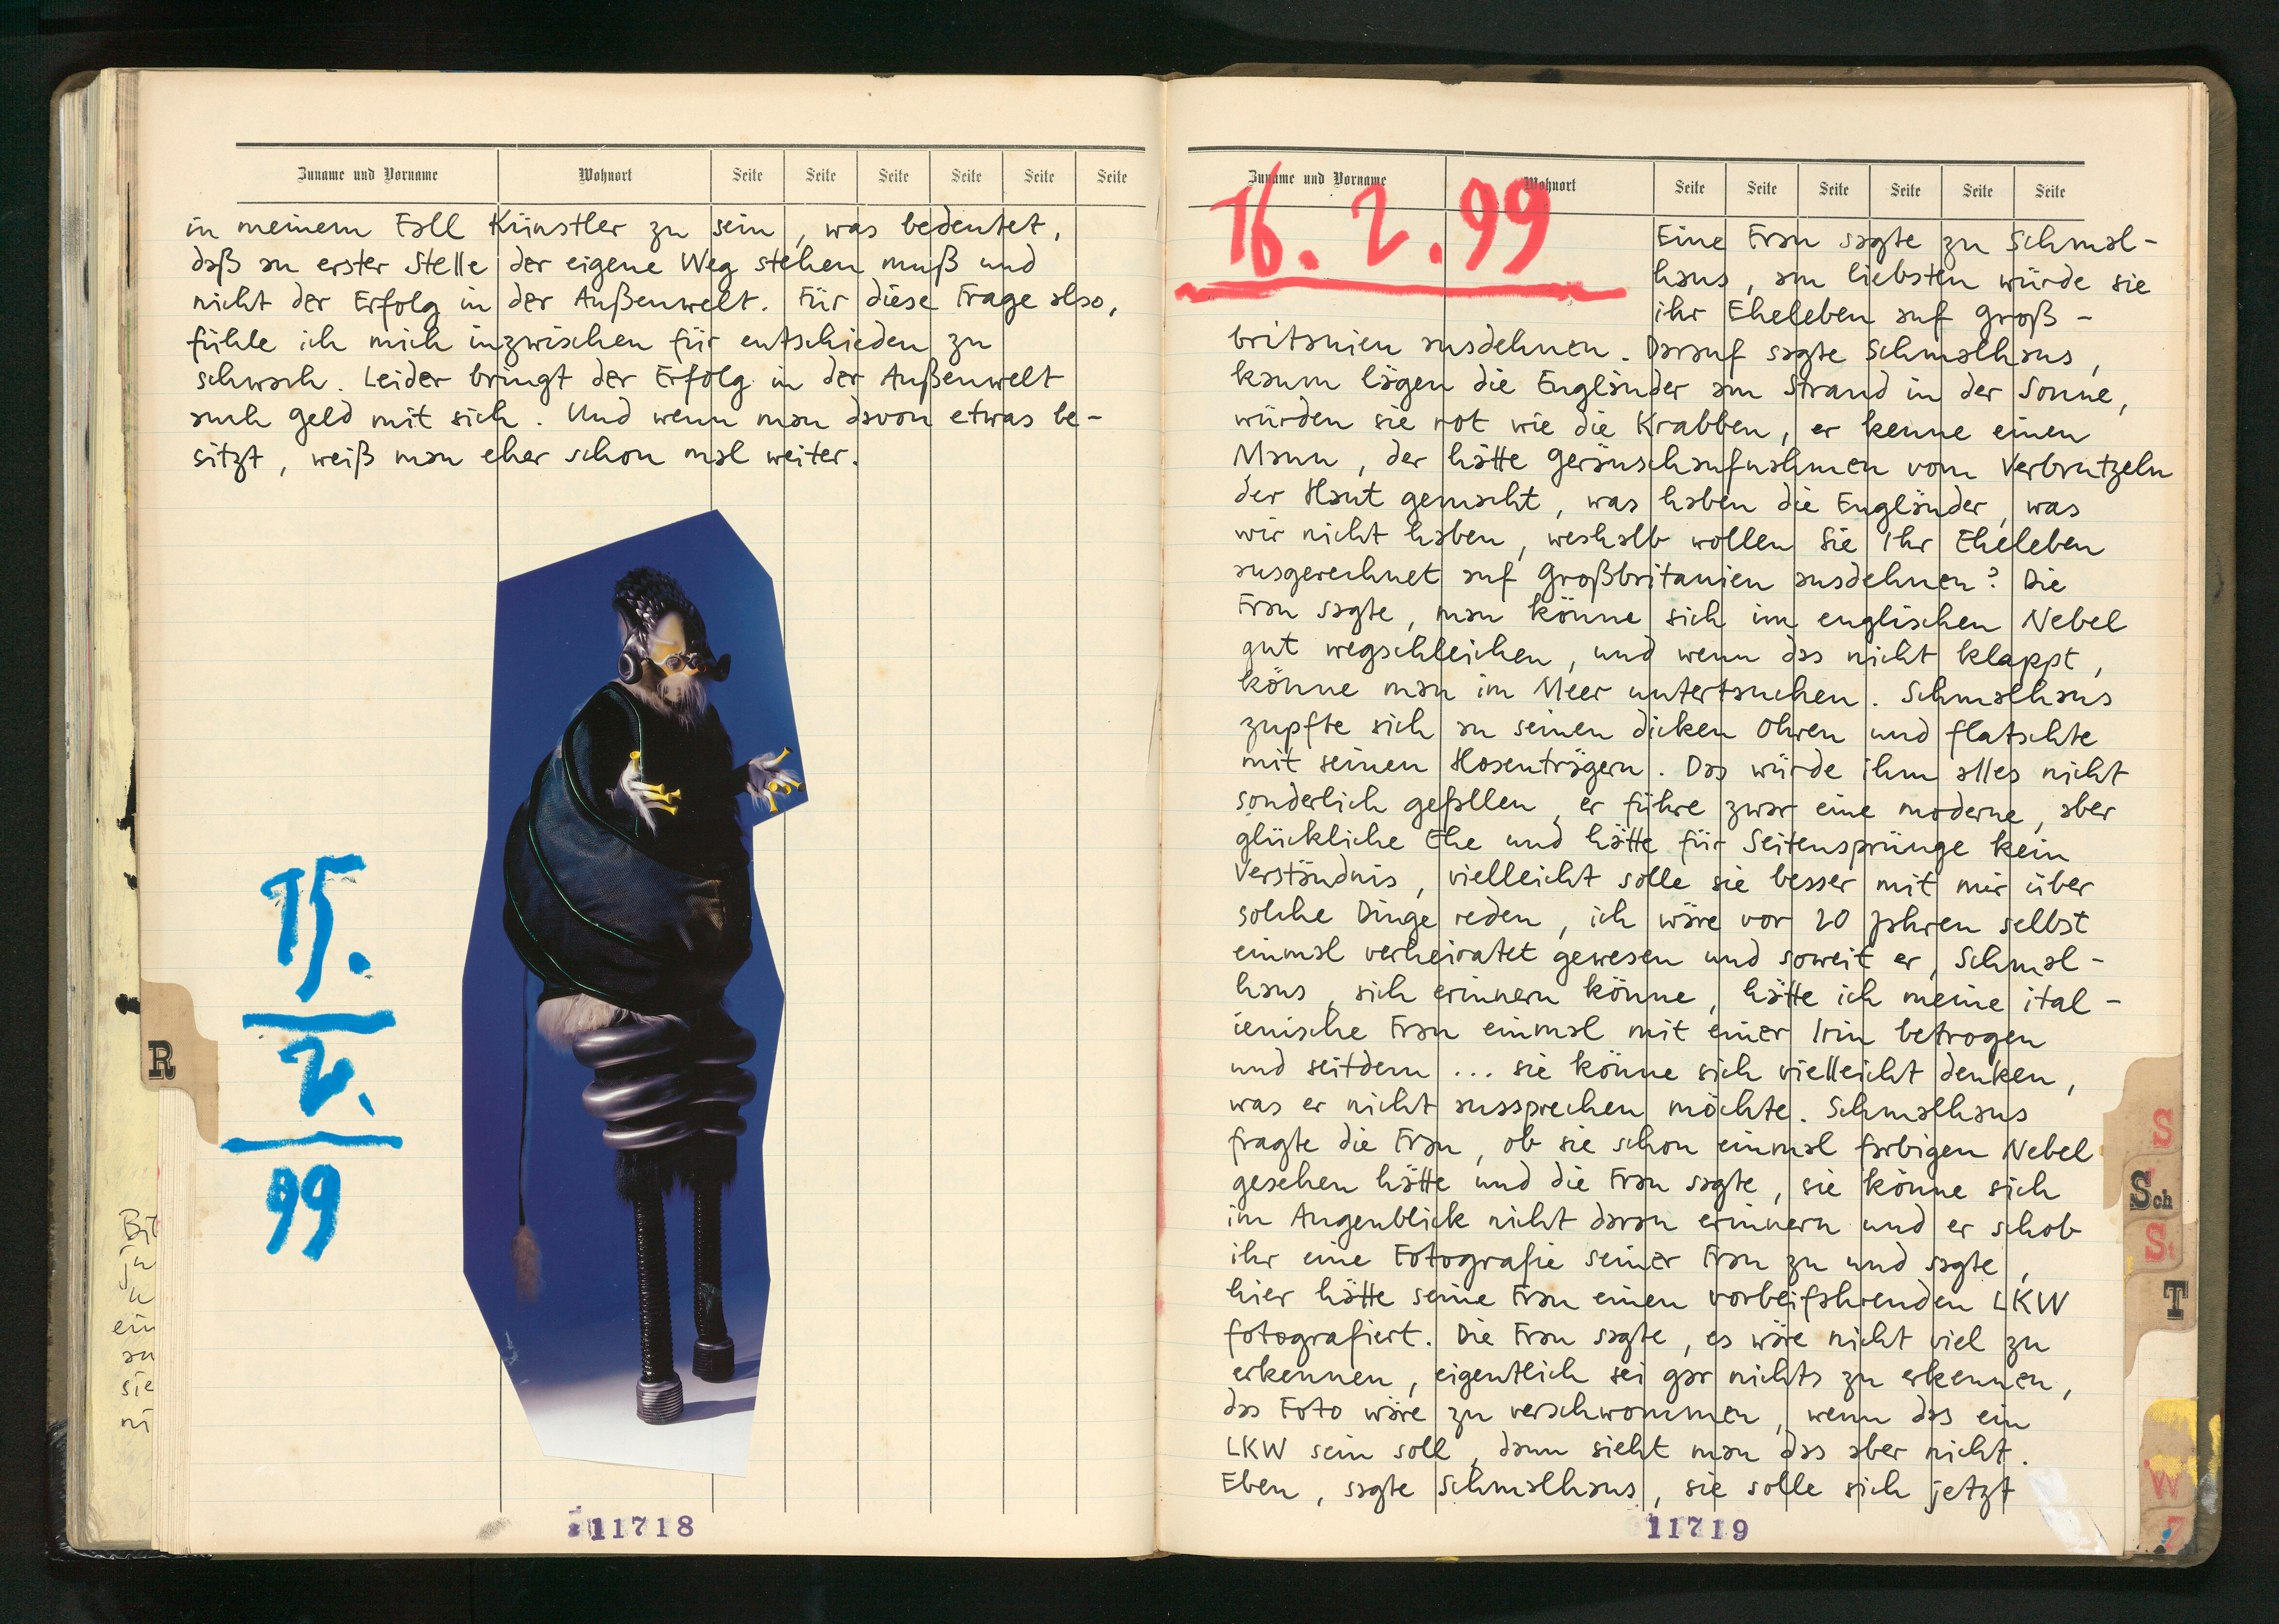 Zuname und Vorname Wohnort Seite Seite Seite Seite Seite Seite
in meinem Fall Künstler zu sein, was bedeutet,
daß an erster Stelle der eigene Weg stehen muß und
nicht der Erfolg in der Außenwelt. Für diese Frage also,
fühle ich mich inzwischen für entschieden zu
schwach. Leider bringt der Erfolg in der Außenwelt
auch Geld mit sich. Und wenn man davon etwas be-
sitzt, weiß man eher schon mal weiter.
15.
2.
99
R
Bit
ein
an
sie
ni
11718
Zuname und Vorname Wohnort Seite Seite Seite Seite Seite Seite
16.2.99
Eine Frau sagte zu Schmal-
haus, am liebsten würde sie
ihr Eheleben auf Groß-
britanien ausdehnen. Darauf sagte Schmalhaus,
kaum lägen die Engländer am Strand in der Sonne,
würden sie rot wie die Krabben, er kenne einen
Mann, der hätte Geräuschaufnahmen vom Verbrutzeln
der Haut gemacht, was haben die Engländer, was
wir nicht haben, weshalb wollen Sie Ihr Eheleben
ausgerechnet auf Großbritanien ausdehnen? Die
Frau sagte, man könne sich im englischen Nebel
gut wegschleichen, und wenn das nicht klappt,
könne man im Meer untertauchen. Schmalhaus
zupfte sich an seinen dicken Ohren und flatschte
mit seinen Hosenträgern. Das würde ihm alles nicht
sonderlich gefallen, er führe zwar eine moderne, aber
glückliche Ehe und hätte für Seitensprünge kein
Verständnis, vielleicht solle sie besser mit mir über
solche Dinge reden, ich wäre vor 20 Jahren selbst
einmal verheiratet gewesen und soweit er, Schmal-
haus, sich erinnern könne, hätte ich meine ital-
ienische Frau einmal mit einer Irin betrogen
und seitdem ... sie könne sich vielleicht denken,
was er nicht aussprechen möchte. Schmalhaus
fragte die Frau, ob sie schon einmal farbigen Nebel
gesehen hätte und die Frau sagte, sie könne sich
im Augenblick nicht daran erinnern und er schob
ihr eine Fotografie seiner Frau zu und sagte,
hier hätte seine Frau einen vorbeifahrenden LKW
fotografiert. Die Frau sagte, es wäre nicht viel zu
erkennen, eigentlich sei gar nichts zu erkennen,
das Foto wäre zu verschwommen, wenn das ein
LKW sein soll, dann sieht man das aber nicht.
Eben, sagte Schmalhaus, sie solle sich jetzt
S
Sch
St
T
W
Z
11719